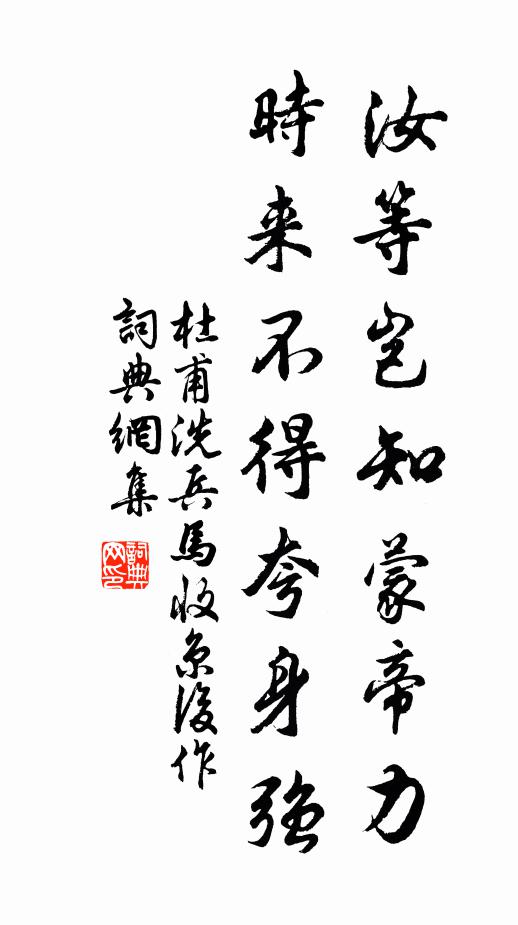 汝等岂知蒙帝力
時来不得夸身強
杜甫洗兵馬收京後作
詞典網集
詞典网印